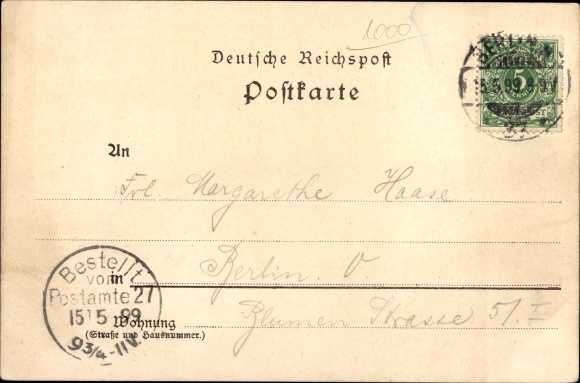 1000
Deutsche Reichspost
Postkarte
BERLIN N.
15.5.99. 8-9V.
37
5
An
Frl. Margarethe Haase
in Berlin. O.
Wohnung Blumen Strasse 51. I
(Straße und Hausnummer.)
Bestellt
vom
Postamte 27
15 5 99
9 3/4-11V.